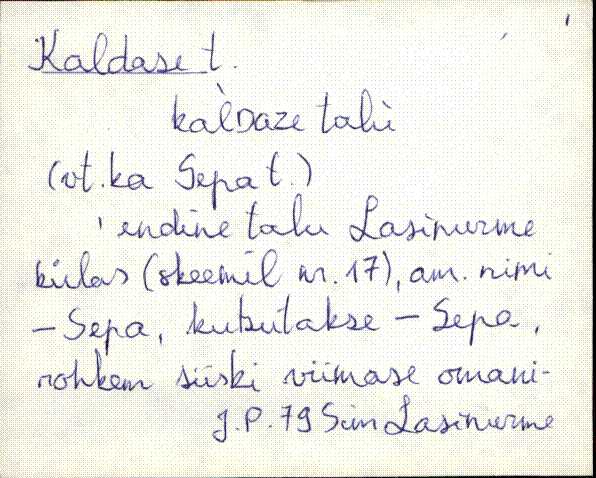 Kaldase t.
kàlDaze talu
(vt. ka Sepa t.)
endine talu Lasinurme
külas (skeemil nr. 17), am. nimi
– Sepa, kutsutakse – Sepa,
rohkem siiski viimase omani-
J.P. 79 Sim Lasinurme